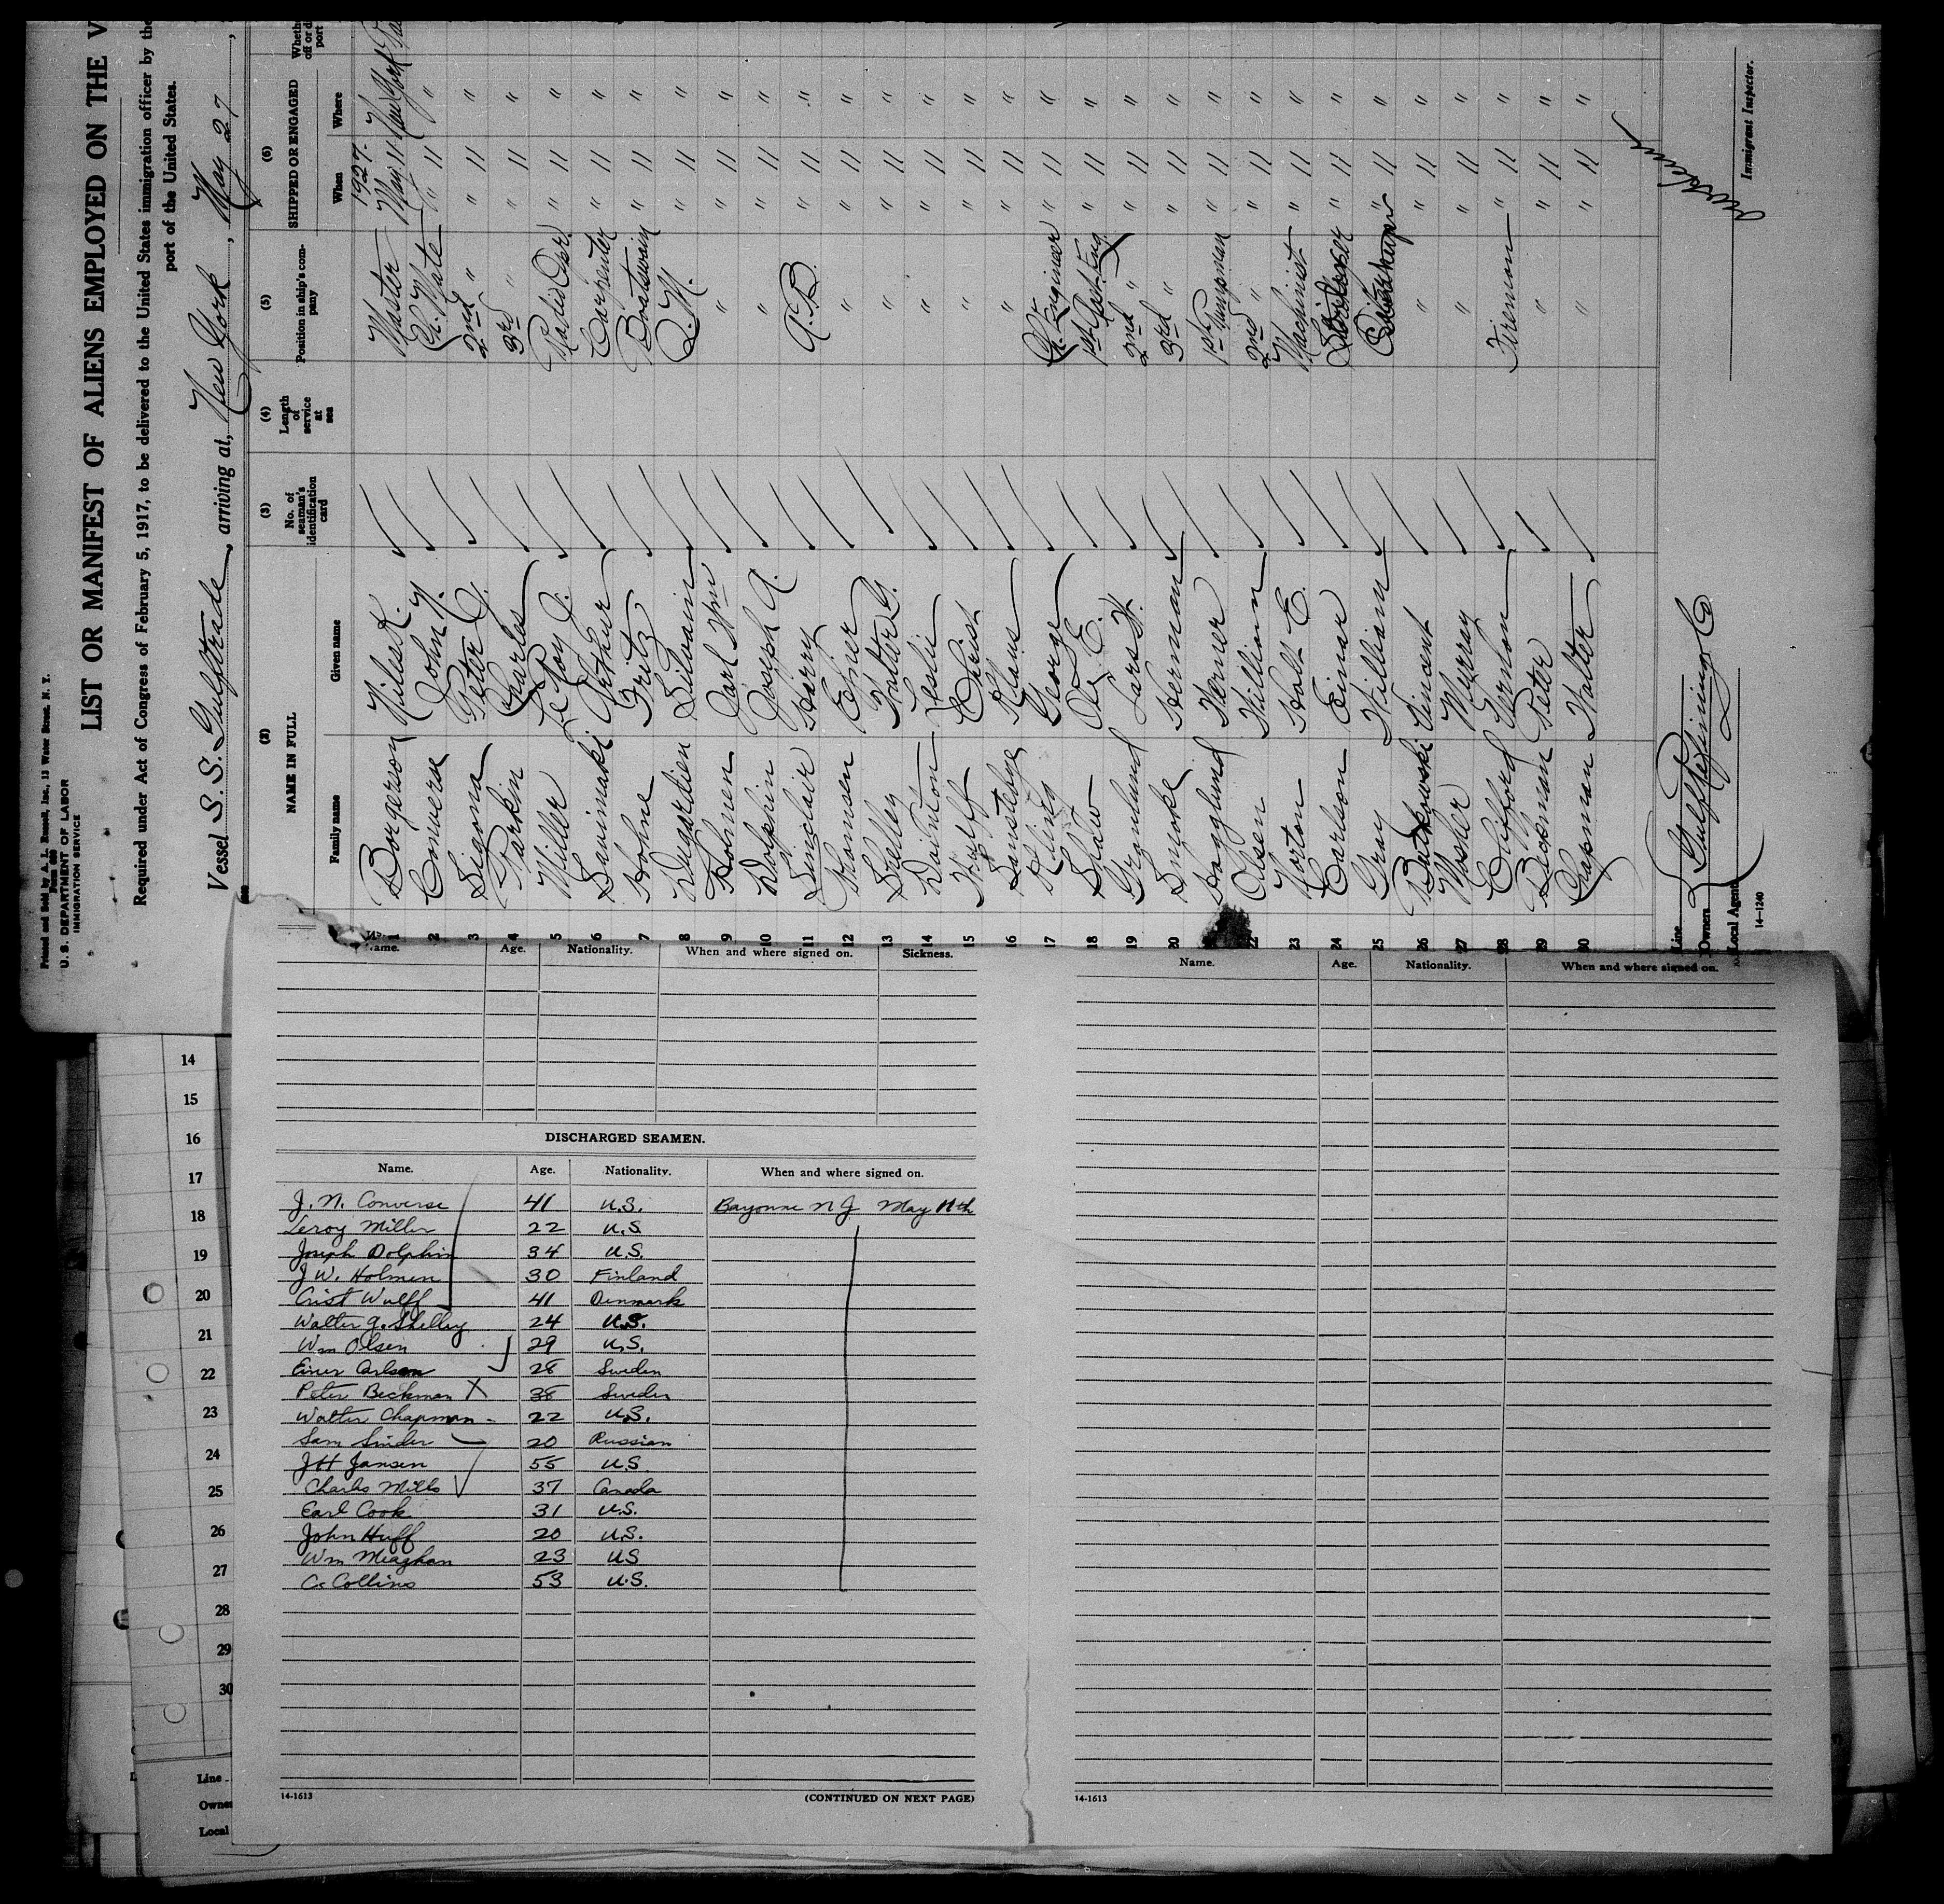 Printed and Sold by A. L. Russell, Inc., 13 Water Street, N. Y.
U. S. DEPARTMENT OF LABOR
IMMIGRATION SERVICE
LIST OR MANIFEST OF ALIENS EMPLOYED ON THE V
Required under Act of Congress of February 5, 1917, to be delivered to the United States immigration officer by the
port of the United States.
Vessel S.S. Gulftrade, arriving at, New York, May 27,
(2) (3) (4) (5) (6)
NAME IN FULL No. of seaman's identification card Length of service at sea Position in ship's company SHIPPED OR ENGAGED
Family name Given name When Where
1927.
1 Borgerson Niles K. Master May 11 New York
2 Converse John N. Ch. Mate " 11 "
3 Sigona Peter C. 2nd " " 11 "
4 Parkin Charles 3rd " " 11 "
5 Miller LeRoy C. Radio Opr. " 11 "
6 Saunimaki Arthur Carpenter " 11 "
7 Hohne Fritz Boatswain " 11 "
8 Dugardien Silvain Q.M. " 11 "
9 Holmen Carl Wm " " 11 "
10 Dolphin Joseph A. " " 11 "
11 Sinclair Harry A.B. " 11 "
12 Thomsen Ejner " " 11 "
13 Shelley Walter G. " " 11 "
14 Dainton Leslie " " 11 "
15 Wulff Christ " " 11 "
16 Klaus " " 11 "
17 Kling George Ch. Engineer " 11 "
18 Shaw Ole E. 1st Asst. Eng. " 11 "
19 Granlund Lars W. 2nd " " 11 "
20 Smooke Herman 3rd " " 11 "
Hagglund Werner 1st Pumpman " 11 "
22 Olsen William 2nd " " 11 "
23 Horton Holt E. Machinist " 11 "
24 Carlson Einar " 11 "
25 Gray William " 11 "
26 Butkowski Vincent " " 11 "
27 Mosher Murray " " 11 "
28 Clifford Vernon Fireman " 11 "
29 Beckman Peter " " 11 "
30 Chapman Walter " " 11 "
Line
Owners Gulf Refining Co
Local Agents
14—1240
Immigrant Inspector.
Name. Age. Nationality. When and where signed on. Sickness.
DISCHARGED SEAMEN.
Name. Age. Nationality. When and where signed on.
J. N. Converse 41 U.S. Bayonne N J May 11th
Leroy Miller 22 U.S
Joseph Dolphin 34 U.S.
J W. Holmen 30 Finland
Crist Wulff 41 Denmark
Walter G. Shelley 24 U.S.
Wm Olsen 29 U.S.
Einer Carlson 28 Sweden
Peter Beckman X 38 Sweden
Walter Chapman 22 U.S.
Sam Snider 20 Russian
J H Jansen 55 U.S
Charles Mills 37 Canada
Earl Cook 31 U.S.
John Huff 20 U.S.
Wm Meaghan 23 US
C. Collins 53 U.S.
14-1613 (CONTINUED ON NEXT PAGE)
Name. Age. Nationality. When and where signed on.
14-1613
14
15
16
17
18
19
20
21
22
23
24
25
26
27
28
29
30
Line
Owne
Local